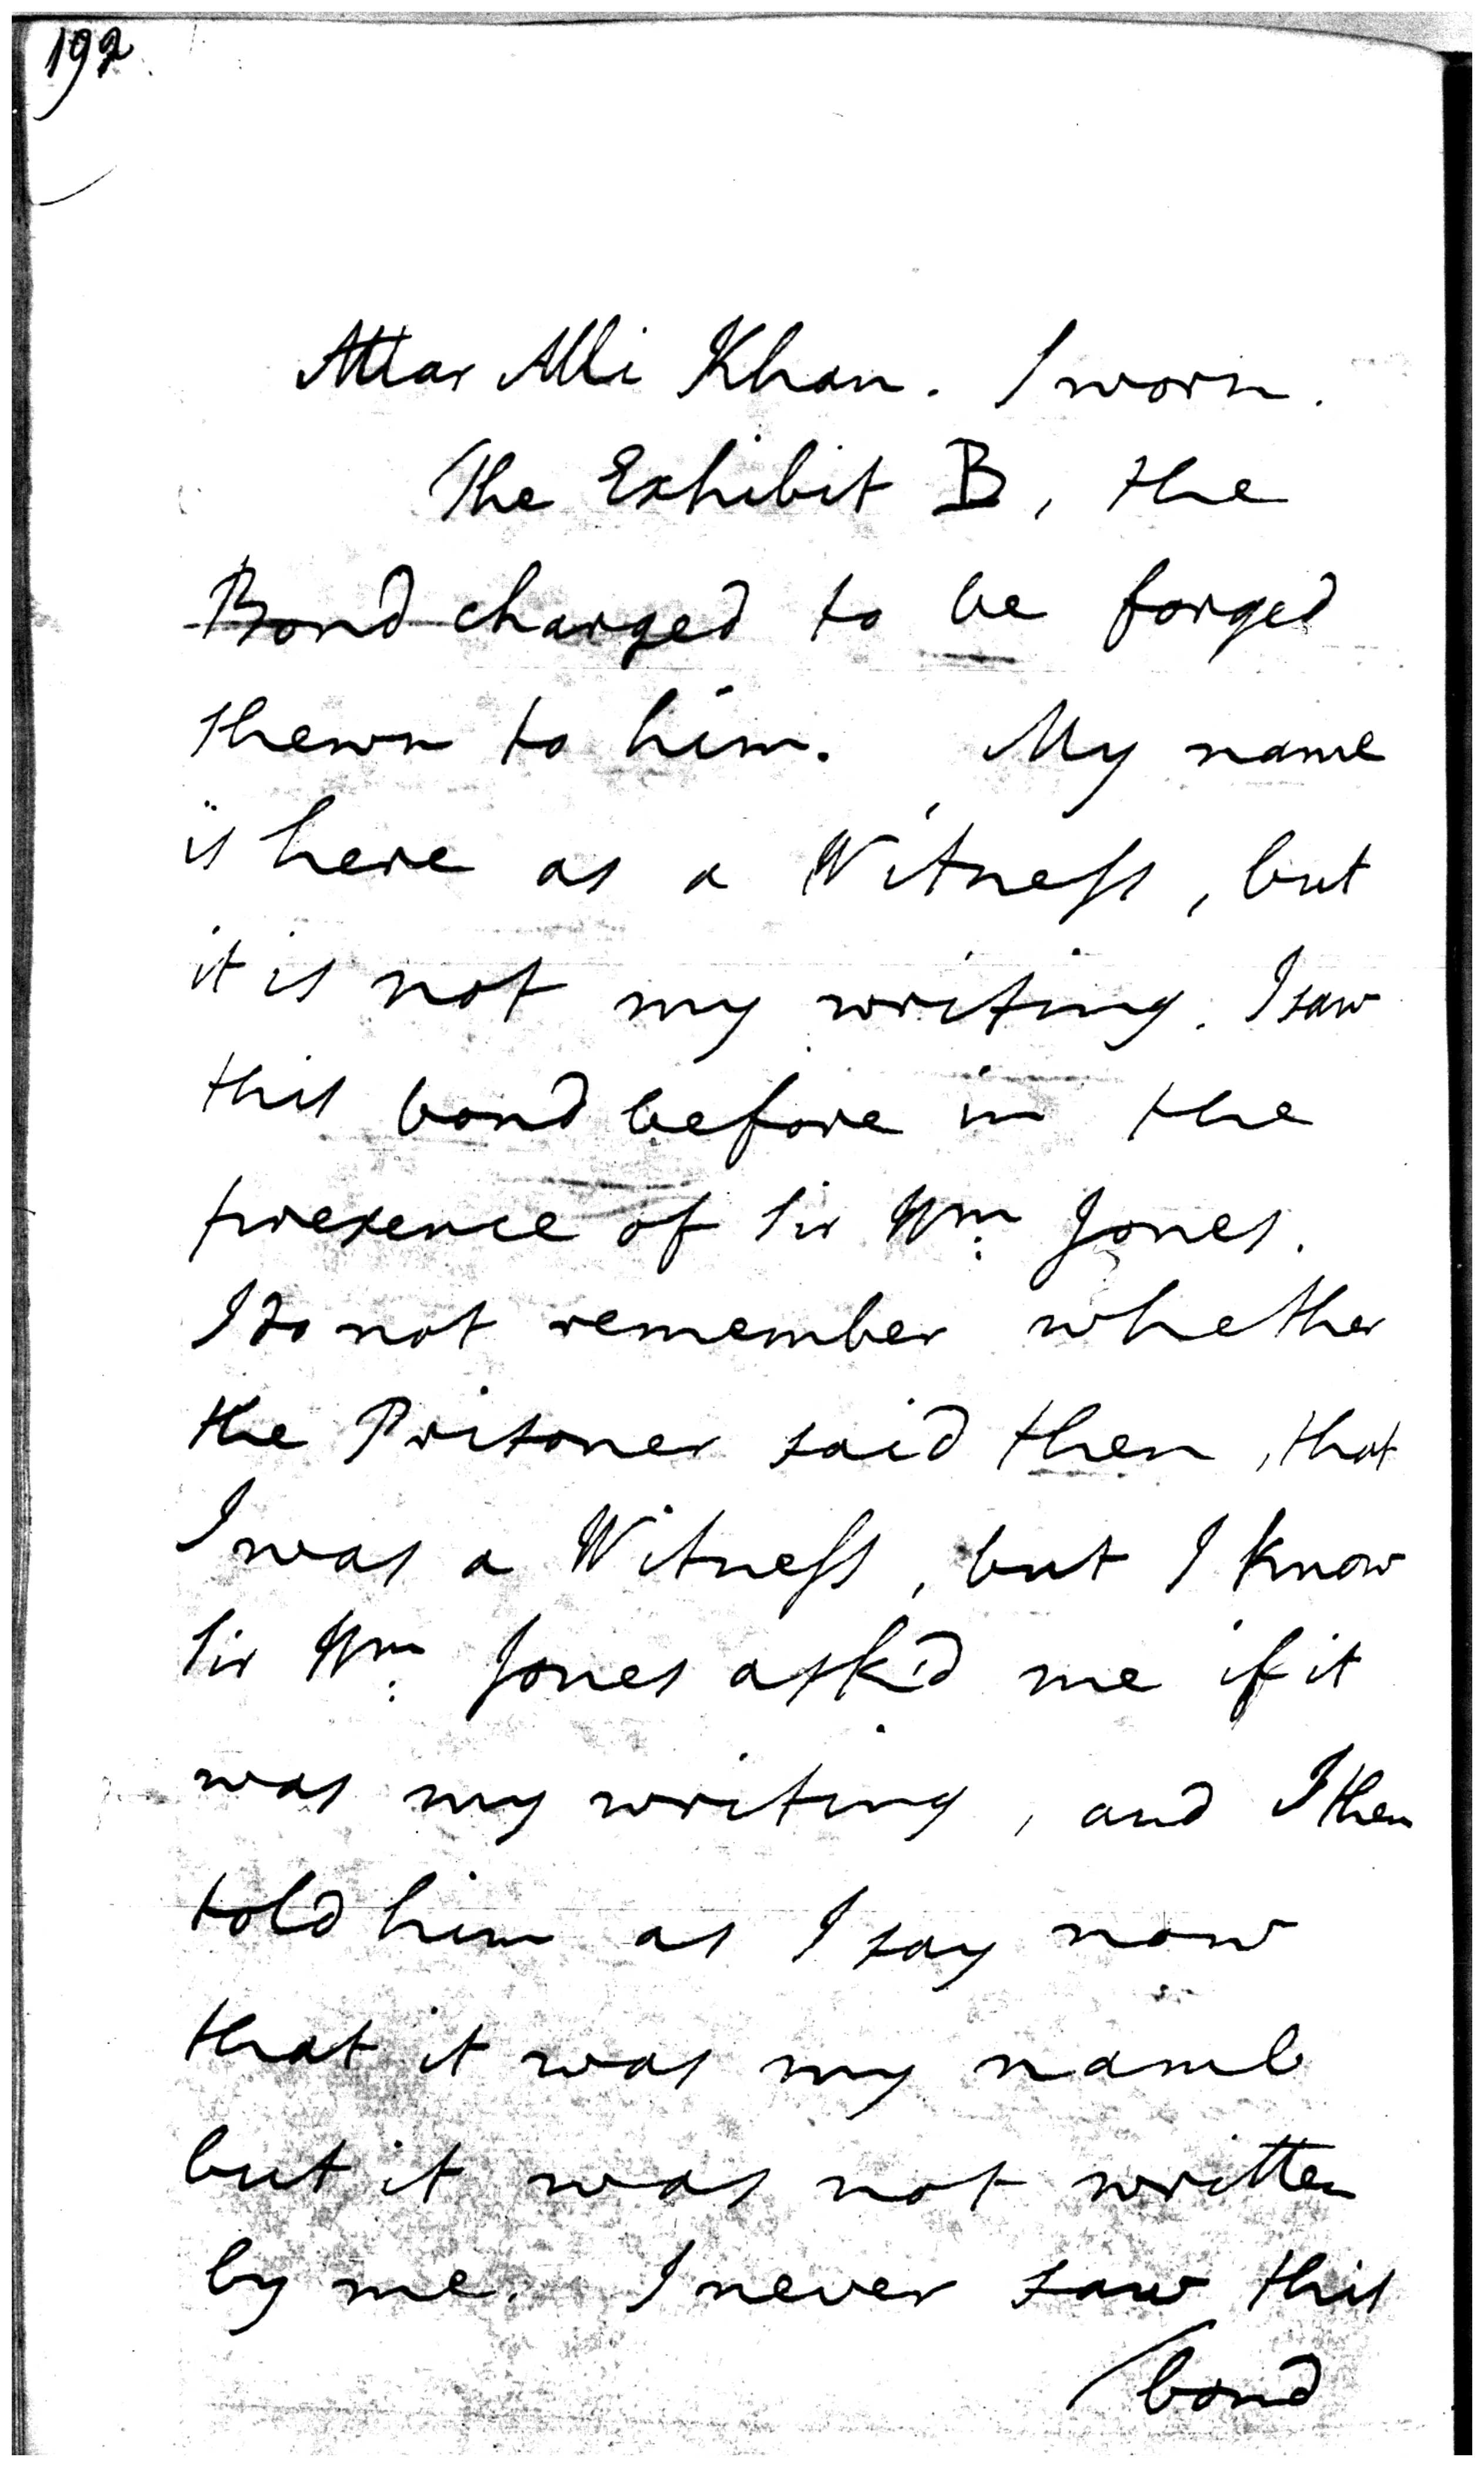 192
Attar Alli Khan. Sworn.
The Exhibit B, the
Bond charged to be forged
shewn to him. My name
is here as a Witness, but
it is not my writing. I saw
this bond before in the
presence of Sir Wm. Jones.
I do not remember whether
the Prisoner said then, that
I was a Witness, but I know
Sir Wm. Jones ask'd me if it
was my writing, and I then
told him as I say now
that it was my name
but it was not written
by me. I never saw this
bond